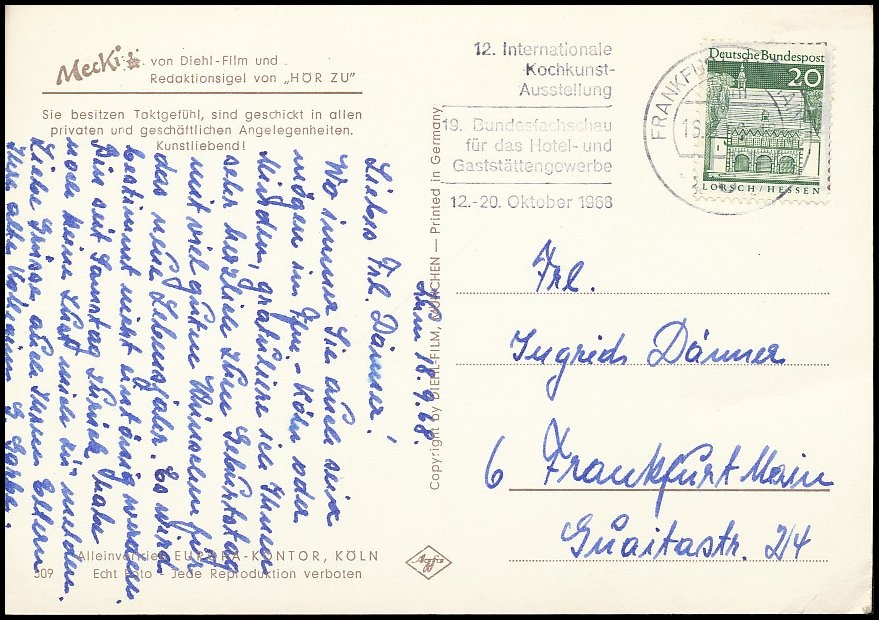 Mecki
von Diehl-Film und
Redaktionsigel von „HÖR ZU"
Sie besitzen Taktgefühl, sind geschickt in allen
privaten und geschäftlichen Angelegenheiten.
Kunstliebend!
12. Internationale
Kochkunst-
Ausstellung
19. Bundesfachschau
für das Hotel- und
Gaststättengewerbe
12.-20. Oktober 1968
FRANKFU
16.
Deutsche Bundespost
20
LORSCH/HESSEN
18.9.68.
Liebes Frl. Dänner!
Wo immer Sie auch sein
mögen im Jtzn.-Köln oder
Minden, gratuliere ich Ihnen
sehr herzlich zum Geburtstag
mit viel guten Wünschen für
das neue Lebensjahr. Es wird
bestimmt nicht eintönig werden.
Bin seit Samstag zurück, habe
noch keine Lust mich zu melden.
Liebe Grüsse, auch Ihren Eltern
Ihre alte Kollegin G.
Copyright by DIEHL-FILM, MÜNCHEN — Printed in Germany
Frl.
Ingrid Dänner
6 Frankfurt Main
Guaitastr. 2/4
Alleinvertrieb EUROPA-KONTOR, KÖLN
509 Echt Foto - Jede Reproduktion verboten
Agfa